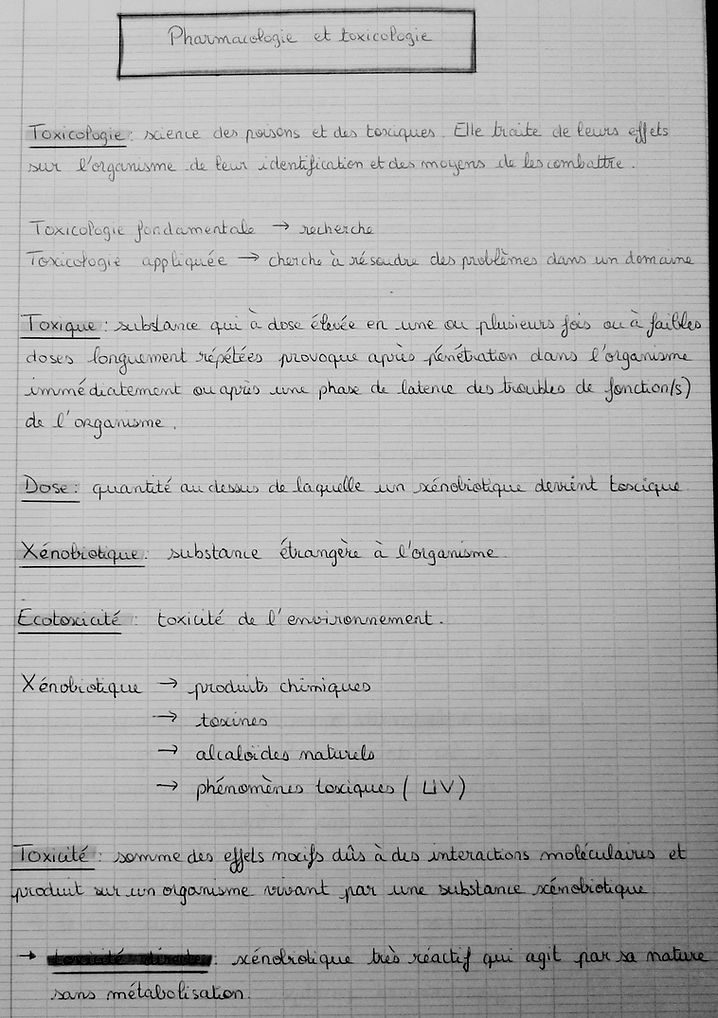 Pharmacologie et toxicologie
Toxicologie : science des poisons et des toxiques. Elle traite de leurs effets
sur l'organisme de leur identification et des moyens de les combattre.
Toxicologie fondamentale → recherche
Toxicologie appliquée → cherche à résoudre des problèmes dans un domaine
Toxique : substance qui à dose élevée en une ou plusieurs fois ou à faibles
doses longuement répétées provoque après pénétration dans l'organisme
immédiatement ou après une phase de latence des troubles de fonction(s)
de l'organisme.
Dose : quantité au dessus de laquelle un xénobiotique devient toxique.
Xénobiotique : substance étrangère à l'organisme.
Ecotoxicité : toxicité de l'environnement.
Xénobiotique → produits chimiques
→ toxines
→ alcaloïdes naturels
→ phénomènes toxiques (UV)
Toxicité : somme des effets nocifs dûs à des interactions moléculaires et
produit sur un organisme vivant par une substance xénobiotique
→ toxicité directe : xénobiotique très réactif qui agit par sa nature
sans métabolisation.